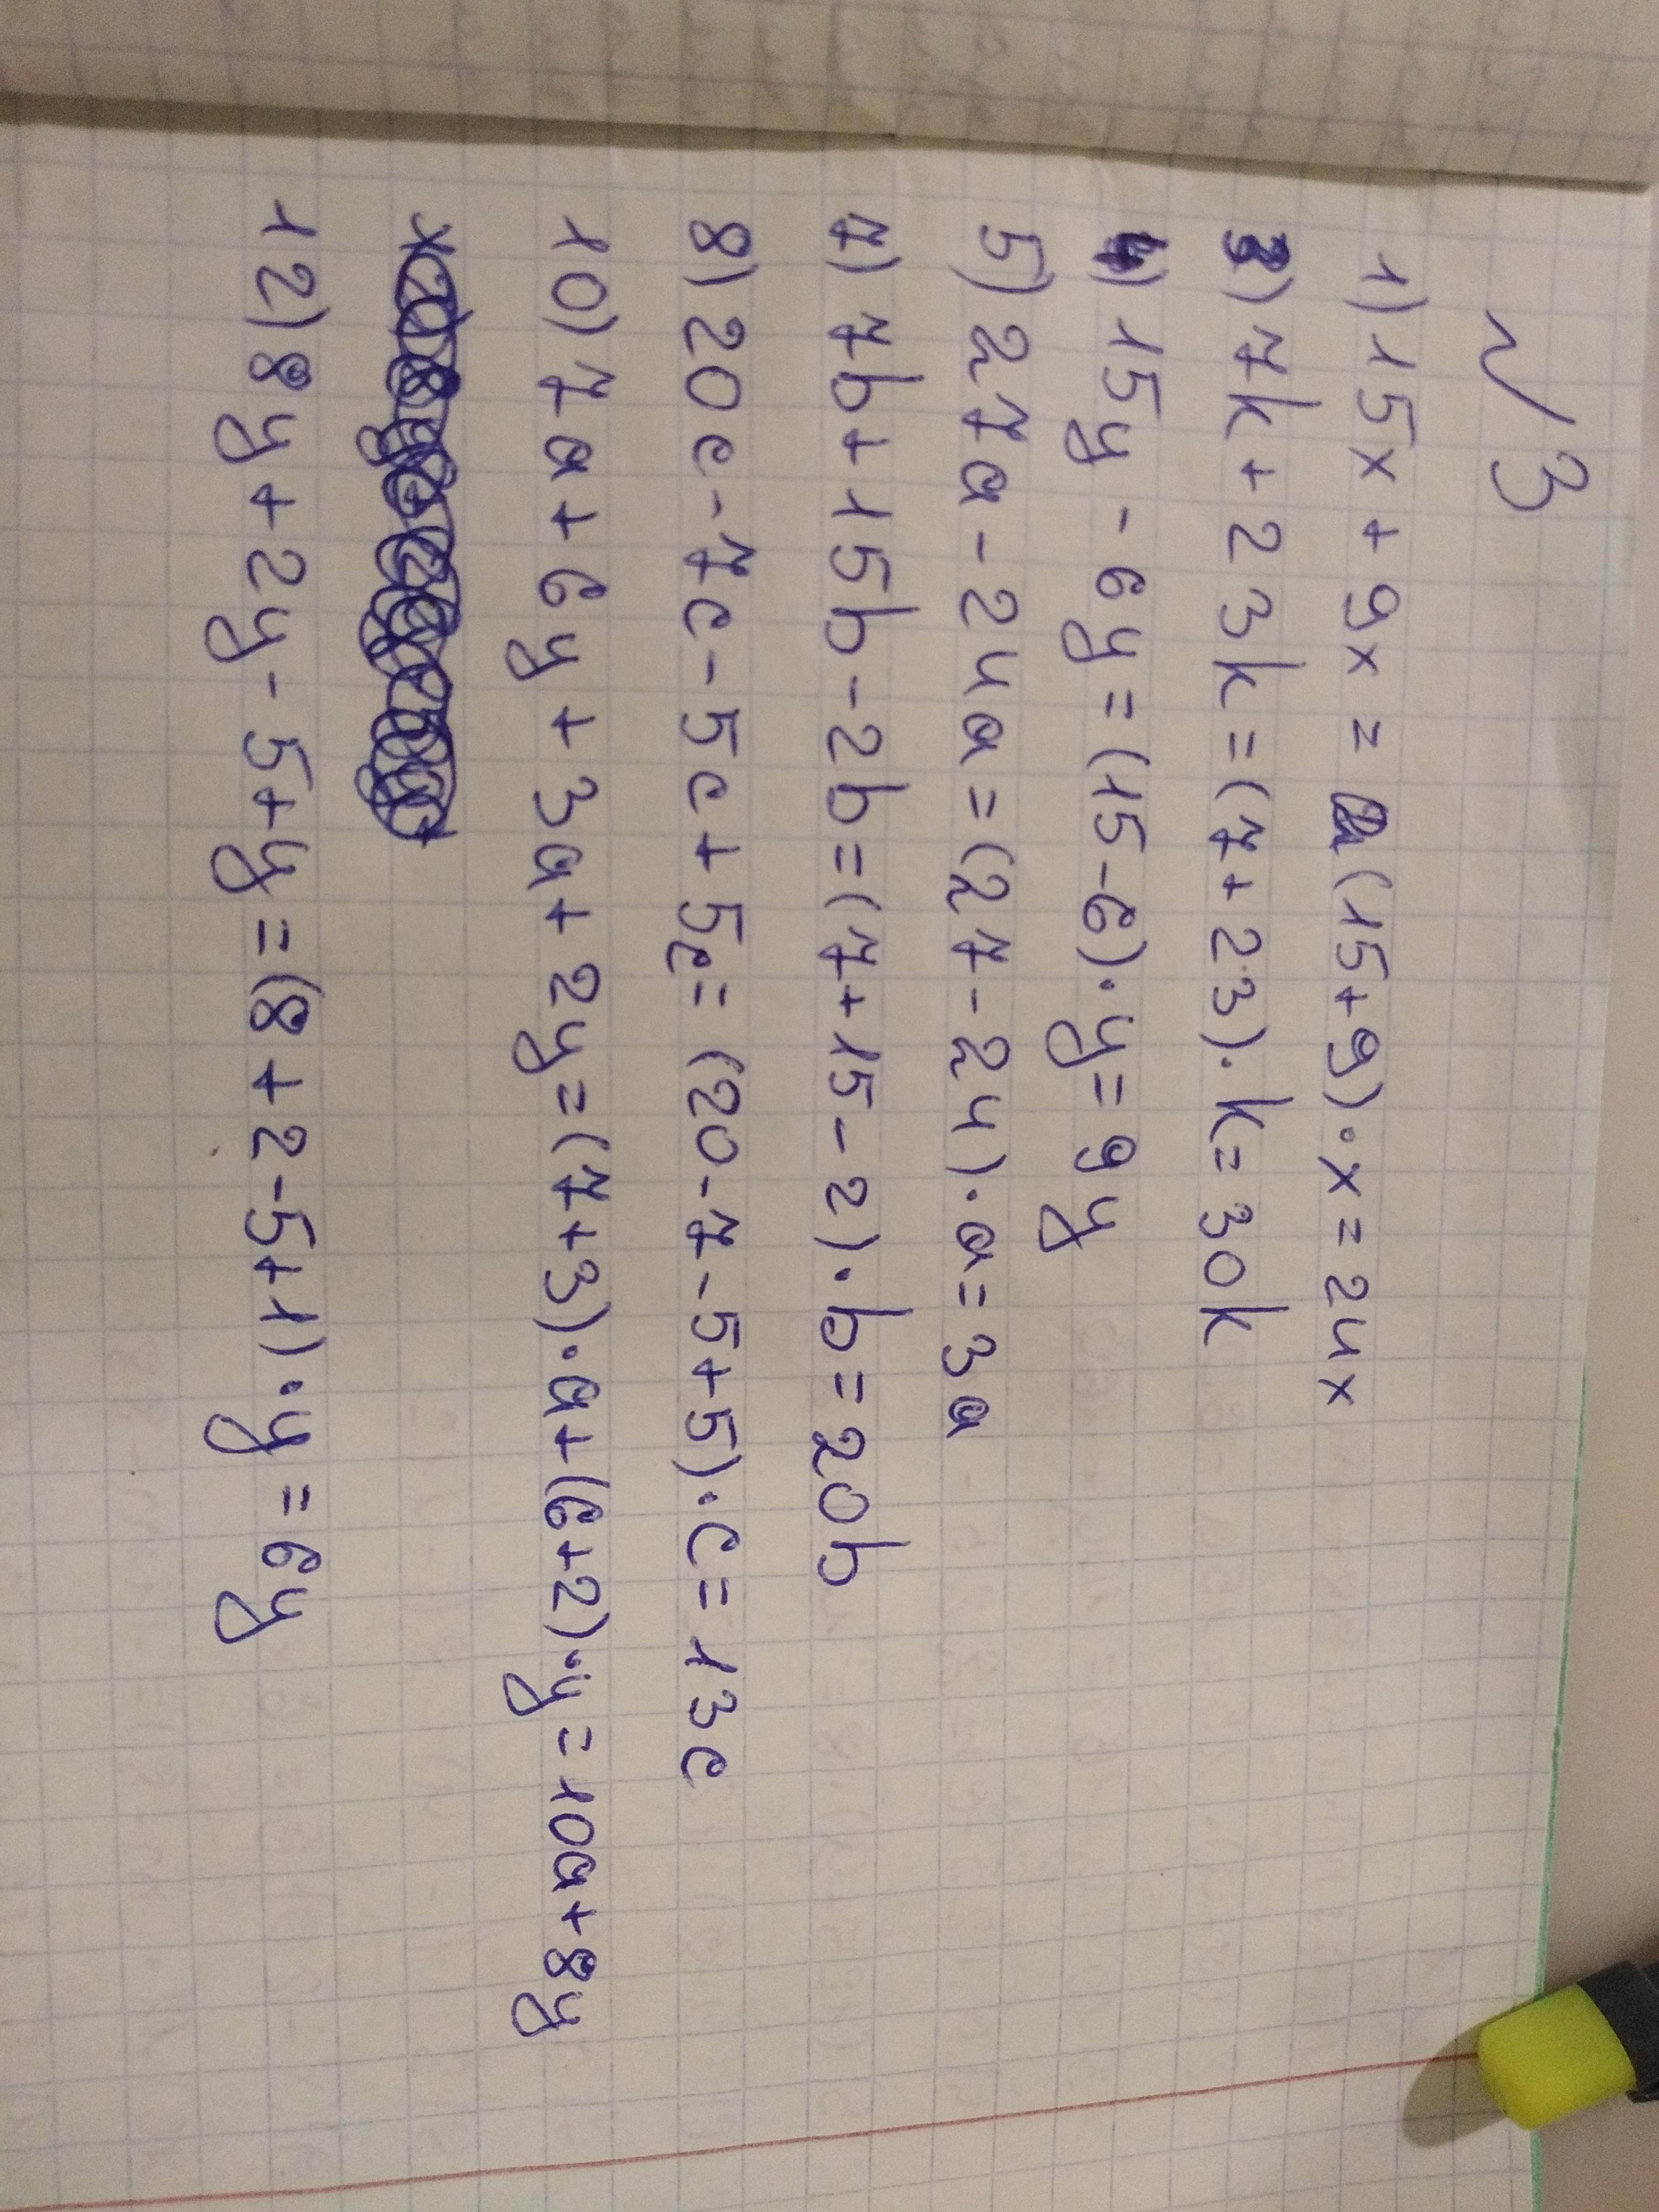 №3
1) 15x + 9x = (15+9)·x = 24x
3) 7k + 23k = (7+23)·k = 30k
4) 15y - 6y = (15-6)·y = 9y
5) 27a - 24a = (27-24)·a = 3a
7) 7b + 15b - 2b = (7+15-2)·b = 20b
8) 20c - 7c - 5c + 5c = (20-7-5+5)·c = 13c
10) 7a + 6y + 3a + 2y = (7+3)·a + (6+2)·y = 10a + 8y
12) 8y + 2y - 5+y = (8+2-5+1)·y = 6y